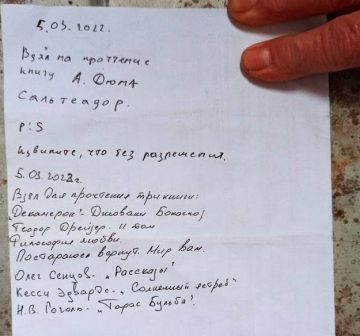 5.03.2022.
Взял на прочтение
книгу А. Дюма
Сальтеадор.
P:S
извините, что без разрешения.
5.03.2022г.
Взял для прочтения три книги:
"Декамерон" - Джовани Бокаччо
Теодор Драйзер. II том
Философия любви.
Постараюсь вернуть. Мир вам.
Олег Сенцов. "Рассказы"
Кесси Эдвардс. "Солнечный ястреб"
Н.В. Гоголь. "Тарас Бульба".